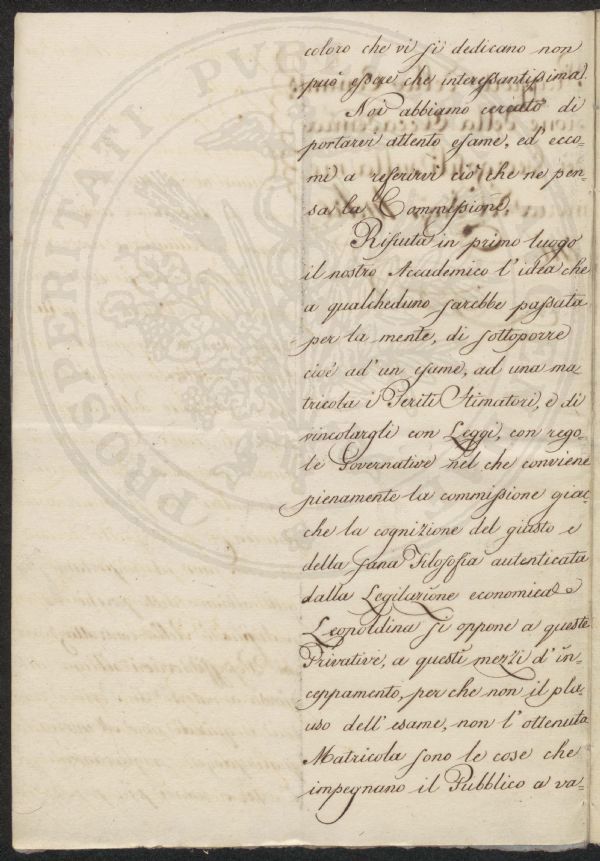 PROSPERITATI PUBL
coloro che vi si dedicano non
può essere che interessantissima.
Noi abbiamo cercato di
portarvi attento esame, ed' ecco-
mi a referirvi ciò che ne pen-
sa la Commissione.
Rifiuta in primo luogo
il nostro Accademico l'idea che
a qualcheduno sarebbe passata
per la mente, di sottoporre
cioè ad' un esame, ad una ma-
tricola i Periti Stimatori, e di
vincolargli con Leggi, con rego-
le Governative nel che conviene
pienamente la commissione giac-
che la cognizione del giusto e
della sana Filosofia autenticata
dalla Legislazione economica
Leopoldina si oppone a queste
Privative, a questi mezzi d'in-
ceppamento, per che non il pla-
uso dell'esame, non l'ottenuta
Matricola sono le cose che
impegnano il Pubblico a va-